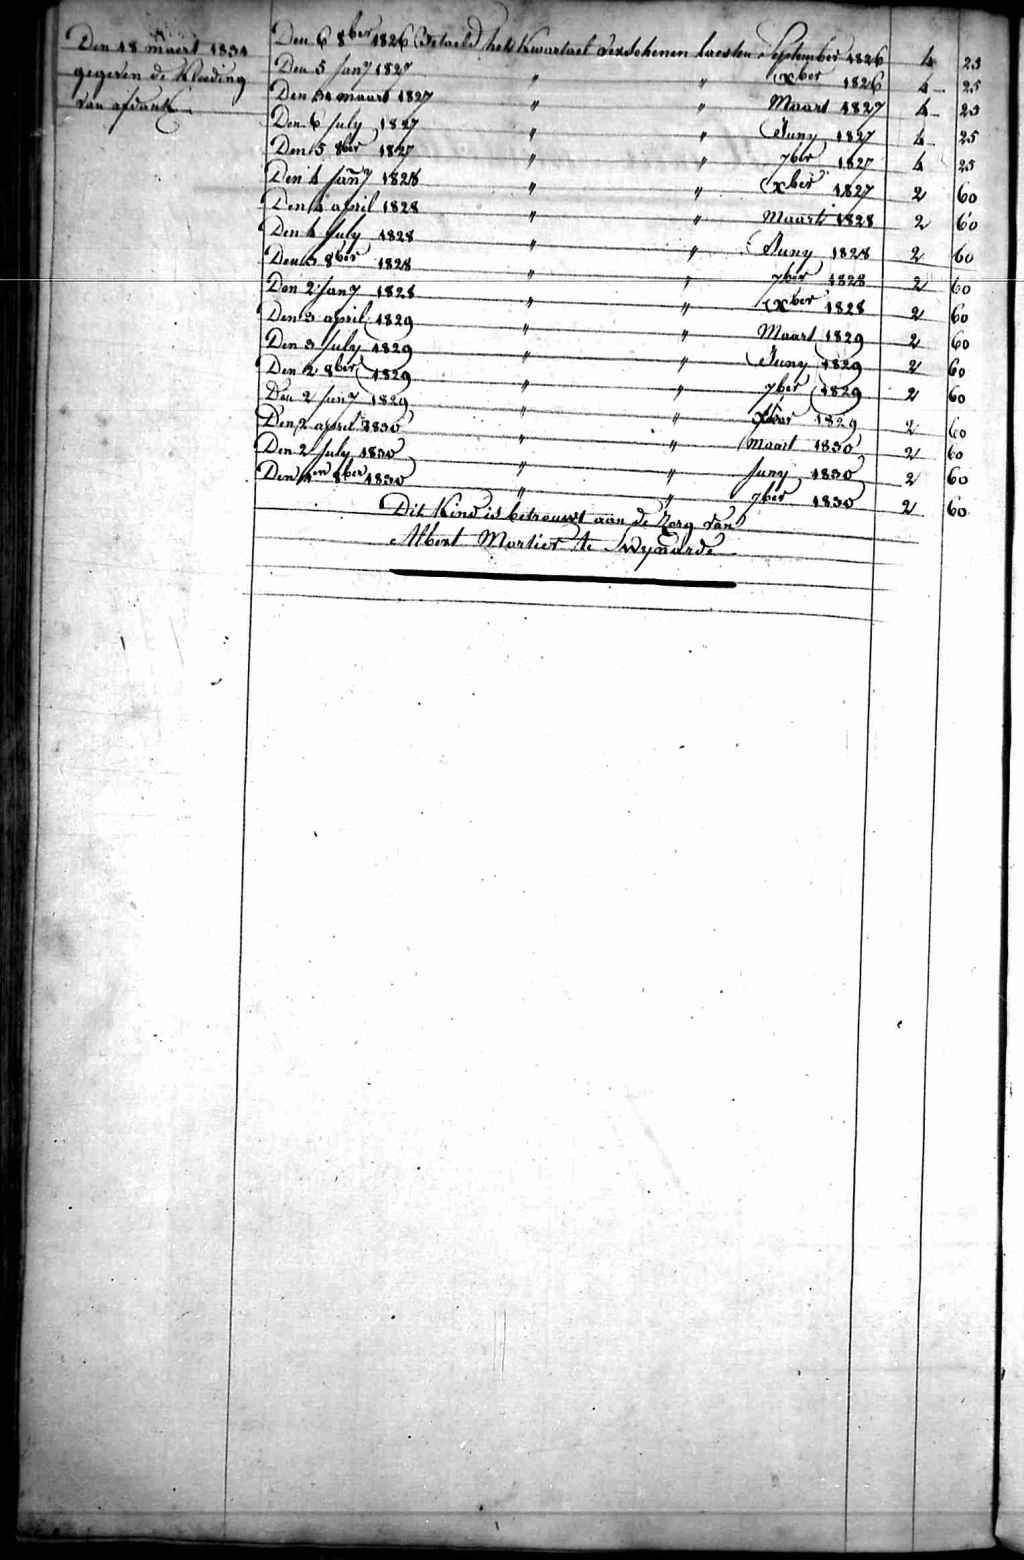 Den 18 maert 1834
gegeven de Kleeding
van afdank
Den 6 8ber 1826 Betaeld het Kwartael verschenen laesten September 1826 4 25
Den 5 Jany 1827 " " Xber 1826 4 25
Den 31 maart 1827 " " Maart 1827 4 25
Den 6 July 1827 " " Juny 1827 4 25
Den 5 8ber 1827 " " 7ber 1827 4 25
Den 4 Jany 1828 " " Xber 1827 2 60
Den april 1828 " " Maart 1828 2 60
Den 4 July 1828 " " Juny 1828 2 60
Den 3 8ber 1828 " " 7ber 1828 2 60
Den 2 Jany 1828 " " Xber 1828 2 60
Den 3 april 1829 " " Maart 1829 2 60
Den 3 July 1829 " " Juny 1829 2 60
Den 2 8ber 1829 " " 7ber 1829 2 60
Den 2 Jany 1829 " " Xber 1829 2 60
Den 2 april 1830 " " Maart 1830 2 60
Den 2 July 1830 " " Juny 1830 2 60
Den 8ber 1830 " " 7ber 1830 2 60
Dit Kind is betrouwt aan de Zorg van
Albert Mortier te Swynarde